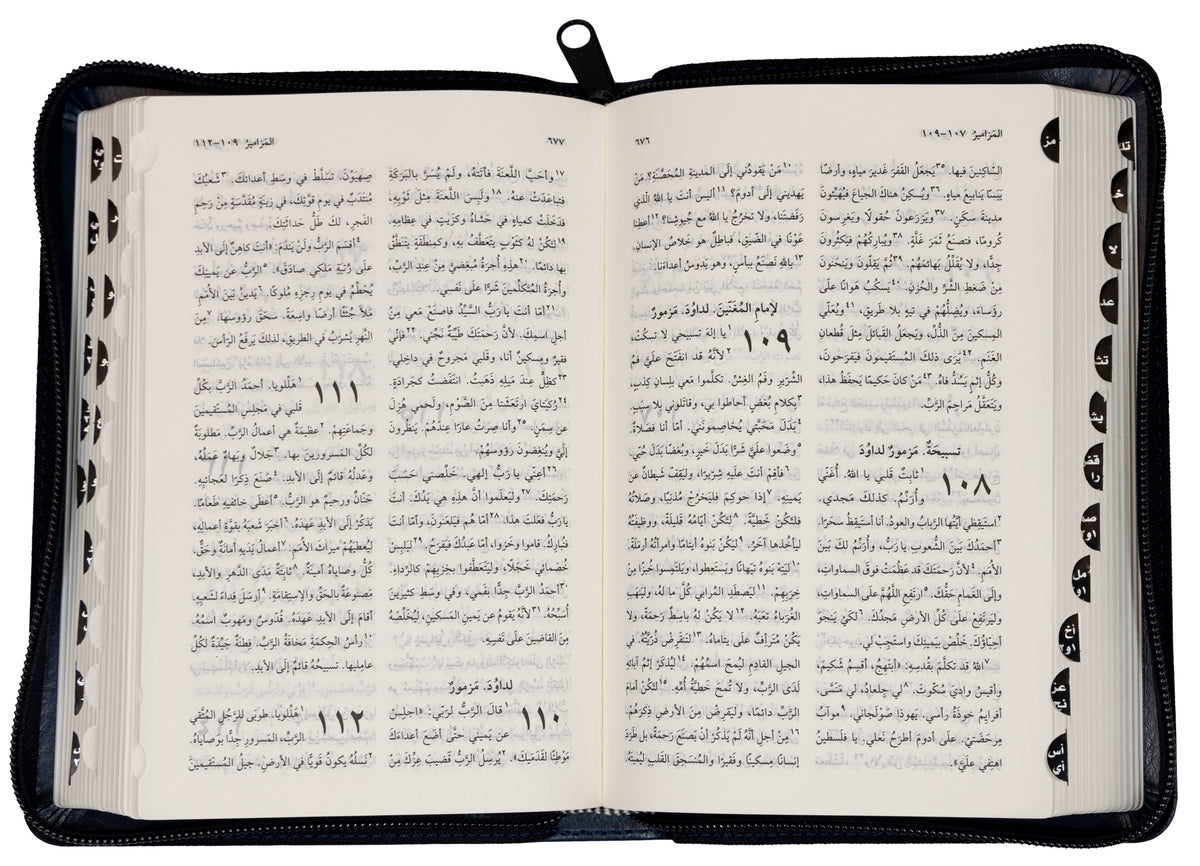 المَزاميرُ ١٠٧–١٠٩
٦٧٦
السّاكِنينَ فيها. ٣٥يَجعَلُ القَفرَ غَديرَ مياهٍ، وأرضًا
يَبَسًا يَنابيعَ مياهٍ. ٣٦ويُسكِنُ هناكَ الجياعَ فيُهَيِّئونَ
مدينةَ سكَنٍ. ٣٧ويَزرَعونَ حُقولًا ويَغرِسونَ
كُرومًا، فتصنَعُ ثَمَرَ غَلَّةٍ. ٣٨ويُبارِكُهُمْ فيَكثُرونَ
جِدًّا، ولا يُقَلِّلُ بَهائمَهُمْ. ٣٩ثُمَّ يَقِلّونَ ويَنحَنونَ
مِنْ ضَغطِ الشَّرِّ والحُزنِ. ٤٠يَسكُبُ هَوانًا علَى
رؤَساءَ، ويُضِلُّهُمْ في تيهٍ بلا طريقٍ، ٤١ويُعَلّي
المِسكينَ مِنَ الذُّلِّ، ويَجعَلُ القَبائلَ مِثلَ قُطعانِ
الغَنَمِ. ٤٢يَرَى ذلكَ المُستَقيمونَ فيَفرَحونَ،
وكُلُّ إثمٍ يَسُدُّ فاهُ. ٤٣مَنْ كانَ حَكيمًا يَحفَظُ هذا،
ويَتَعَقَّلُ مَراحِمَ الرَّبِّ.
تسبيحَةٌ. مَزمورٌ لداوُدَ
١٠٨ ثابِتٌ قَلبي يا اللهُ. أُغَنّي
وأُرَنِّمُ. كذلكَ مَجدي.
٢استَيقِظي أيَّتُها الرَّبابُ والعودُ. أنا أستَيقِظُ سحَرًا.
٣أحمَدُكَ بَينَ الشُّعوبِ يا رَبُّ، وأُرَنِّمُ لكَ بَينَ
الأُمَمِ. ٤لأنَّ رَحمَتَكَ قد عَظُمَتْ فوقَ السماواتِ،
وإلَى الغَمامِ حَقُّكَ. ٥ارتَفِعِ اللَّهُمَّ علَى السماواتِ،
وليَرتَفِعْ علَى كُلِّ الأرضِ مَجدُكَ. ٦لكَيْ يَنجوَ
أحِبّاؤُكَ. خَلِّصْ بيَمينِكَ واستَجِبْ لي.
٧اللهُ قد تكلَّمَ بقُدسِهِ: «أبتَهِجُ، أقسِمُ شَكيمَ،
وأقيسُ واديَ سُكّوتَ. ٨لي جِلعادُ، لي مَنَسَّى،
أفرايِمُ خوذَةُ رأسي. يَهوذا صَوْلَجاني. ٩موآبُ
مِرحَضَتي. علَى أدومَ أطرَحُ نَعلي. يا فلِسطينُ
اهتِفي علَيَّ».
١٠مَنْ يَقودُني إلَى المدينةِ المُحَصَّنَةِ؟ مَنْ
يَهديني إلَى أدومَ؟ ١١أليس أنتَ يا اللهُ الّذي
رَفَضتَنا، ولا تخرُجُ يا اللهُ مع جُيوشِنا؟ ١٢أعطِنا
عَوْنًا في الضّيقِ، فباطِلٌ هو خَلاصُ الإنسانِ.
١٣باللهِ نَصنَعُ ببأسٍ، وهو يَدوسُ أعداءَنا.
لإمامِ المُغَنّينَ. لداوُدَ. مَزمورٌ
١٠٩ ١يا إلهَ تسبيحي لا تسكُتْ،
٢لأنَّهُ قد انفَتَحَ علَيَّ فمُ
الشِّرّيرِ وفَمُ الغِشِّ. تكلَّموا مَعي بلِسانِ كِذبٍ،
٣بكلامِ بُغضٍ أحاطوا بي، وقاتَلوني بلا سبَبٍ.
٤بَدَلَ مَحَبَّتي يُخاصِمونَني. أمّا أنا فصَلاةٌ.
٥وضَعوا علَيَّ شَرًّا بَدَلَ خَيرٍ، وبُغضًا بَدَلَ حُبّي.
٦فأقِمْ أنتَ علَيهِ شِرّيرًا، وليَقِفْ شَيطانٌ عن
يَمينِهِ. ٧إذا حوكِمَ فليَخرُجْ مُذنِبًا، وصَلاتُهُ
فلتَكُنْ خَطيَّةً. ٨لتَكُنْ أيّامُهُ قَليلَةً، ووظيفَتُهُ
ليأخُذها آخَرُ. ٩ليَكُنْ بَنوهُ أيتامًا وامرأتُهُ أرمَلَةً.
١٠ليَتِهْ بَنوهُ تيَهانًا ويَستَعطوا، ويَلتَمِسوا خُبزًا مِنْ
خِرَبِهِمْ. ١١ليَصطَدِ المُرابي كُلَّ ما لهُ، وليَنهَبِ
الغُرَباءُ تعَبَهُ. ١٢لا يَكُنْ لهُ باسِطٌ رَحمَةً، ولا
يَكُنْ مُتَرأِّفٌ علَى يتاماهُ. ١٣لتَنقَرِضْ ذُرّيَّتُهُ. في
الجيلِ القادِمِ ليُمحَ اسمُهُمْ. ١٤ليُذكَرْ إثمُ آبائهِ
لَدَى الرَّبِّ، ولا تُمحَ خَطيَّةُ أُمِّهِ. ١٥لتَكُنْ أمامَ
الرَّبِّ دائمًا، وليَقرِضْ مِنَ الأرضِ ذِكرَهُمْ.
١٦مِنْ أجلِ أنَّهُ لم يَذكُرْ أنْ يَصنَعَ رَحمَةً، بل طَرَدَ
إنسانًا مِسكينًا وفَقيرًا والمُنسَحِقَ القَلبِ ليُميتَهُ.
٦٧٧
المَزاميرُ ١٠٩–١١٢
١٧وأحَبَّ اللَّعنَةَ فأتَتهُ، ولَمْ يُسَرَّ بالبَرَكَةِ
فتباعَدَتْ عنهُ. ١٨ولَبِسَ اللَّعنَةَ مِثلَ ثَوْبِهِ،
فدَخَلَتْ كمياهٍ في حَشاهُ وكزَيتٍ في عِظامِهِ.
١٩لتَكُنْ لهُ كثَوْبٍ يتَعَطَّفُ بهِ، وكمِنطَقَةٍ يتَنَطَّقُ
بها دائمًا. ٢٠هذِهِ أُجرَةُ مُبغِضيَّ مِنْ عِندِ الرَّبِّ،
وأُجرَةُ المُتَكلِّمينَ شَرًّا علَى نَفسي.
٢١أمّا أنتَ يا رَبُّ السَّيِّدُ فاصنَعْ مَعي مِنْ
أجلِ اسمِكَ. لأنَّ رَحمَتَكَ طَيِّبَةٌ نَجِّني. ٢٢فإنّي
فقيرٌ ومِسكينٌ أنا، وقَلبي مَجروحٌ في داخِلي.
٢٣كظِلٍّ عِندَ مَيلِهِ ذَهَبتُ. انتَفَضتُ كجَرادَةٍ.
٢٤رُكبَتايَ ارتَعَشَتا مِنَ الصَّوْمِ، ولَحمي هُزِلَ
عن سِمَنٍ. ٢٥وأنا صِرتُ عارًا عِندَهُمْ. يَنظُرونَ
إلَيَّ ويُنغِضونَ رؤوسَهُمْ.
٢٦أعِنّي يا رَبُّ إلهي. خَلِّصني حَسَبَ
رَحمَتِكَ. ٢٧وليَعلَموا أنَّ هذِهِ هي يَدُكَ. أنتَ
يا رَبُّ فعَلتَ هذا. ٢٨أمّا هُم فيَلعَنونَ، وأمّا أنتَ
فتُبارِكُ. قاموا وخَزوا، أمّا عَبدُكَ فيَفرَحُ. ٢٩ليَلبِسْ
خُصَمائي خَجَلًا، وليَتَعَطَّفوا بخِزيِهِمْ كالرِّداءِ.
٣٠أحمَدُ الرَّبَّ جِدًّا بفَمي، وفي وسَطِ كثيرينَ
أُسَبِّحُهُ. ٣١لأنَّهُ يَقومُ عن يَمينِ المَسكينِ، ليُخَلِّصَهُ
مِنَ القاضينَ علَى نَفسِهِ.
لداوُدَ. مَزمورٌ
١١٠ ١قالَ الرَّبُّ لرَبّي: «اجلِسْ
عن يَميني حتَّى أضَعَ أعداءَكَ
مَوْطِئًا لقَدَمَيكَ». ٢يُرسِلُ الرَّبُّ قَضيبَ عِزِّكَ مِنْ
صِهيَوْنَ. تسَلَّطْ في وسَطِ أعدائكَ. ٣شَعبُكَ
مُنتَدَبٌ في يومِ قوَّتِكَ، في زينَةٍ مُقَدَّسَةٍ مِنْ رَحِمِ
الفَجرِ، لكَ طَلُّ حَداثَتِكَ.
٤أقسَمَ الرَّبُّ ولَنْ يَندَمَ: «أنتَ كاهِنٌ إلَى الأبدِ
علَى رُتبَةِ مَلكي صادَقَ». ٥الرَّبُّ عن يَمينِكَ
يُحَطِّمُ في يومِ رِجزِهِ مُلوكًا. ٦يَدينُ بَينَ الأُمَمِ.
مَلأَ جُثَثًا أرضًا واسِعَةً. سحَقَ رؤوسَها. ٧مِنَ
النَّهرِ يَشرَبُ في الطريقِ، لذلكَ يَرفَعُ الرّأسَ.
١١١ ١هَلِّلويا. أحمَدُ الرَّبَّ بكُلِّ
قَلبي في مَجلِسِ المُستَقيمينَ
وجَماعَتِهِمْ. ٢عظيمَةٌ هي أعمالُ الرَّبِّ. مَطلوبَةٌ
لكُلِّ المَسرورينَ بها. ٣جَلالٌ وبَهاءٌ عَمَلُهُ،
وعَدلُهُ قائمٌ إلَى الأبدِ. ٤صَنَعَ ذِكرًا لعَجائبِهِ.
حَنّانٌ ورحيمٌ هو الرَّبُّ. ٥أعطَى خائفيهِ طَعامًا.
يَذكُرُ إلَى الأبدِ عَهدَهُ. ٦أخبَرَ شَعبَهُ بقوَّةِ أعمالِهِ،
ليُعطيَهُمْ ميراثَ الأُمَمِ. ٧أعمالُ يَدَيهِ أمانَةٌ وحَقٌّ.
كُلُّ وصاياهُ أمينَةٌ. ٨ثابِتَةٌ مَدَى الدَّهرِ والأبدِ،
مَصنوعَةٌ بالحَقِّ والِاستِقامَةِ. ٩أرسَلَ فِداءً لشَعبِهِ.
أقامَ إلَى الأبدِ عَهدَهُ. قُدّوسٌ ومَهوبٌ اسمُهُ.
١٠رأسُ الحِكمَةِ مَخافَةُ الرَّبِّ. فِطنَةٌ جَيِّدَةٌ لكُلِّ
عامِليها. تسبيحُهُ قائمٌ إلَى الأبدِ.
١١٢ ١هَلِّلويا. طوبَى للرَّجُلِ المُتَّقي
الرَّبَّ، المَسرورِ جِدًّا بوَصاياهُ.
٢نَسلُهُ يكونُ قَويًّا في الأرضِ. جيلُ المُستَقيمينَ
مز
تك
خر
لا
عد
تث
يش
قض
را
مل
أخ
عز
نح
أس
أي